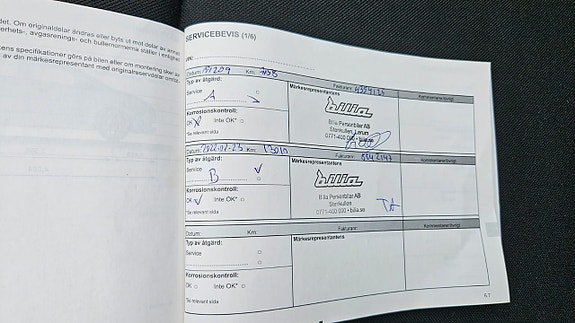 det. Om originaldelar ändras eller byts ut mot delar av annan
erhets-, avgasrenings- och bullernormerna ställer i enlighet
kens specifikationer görs på bilen eller om montering sker av
av din märkesrepresentant med originalservicedelar omfatt
SERVICEBEVIS (1/6)
Datum: Km: Fakturanr: Kommentarer/övrigt
Typ av åtgärd: Märkesrepresentantens
Service
A
Korrosionskontroll:
OK Inte OK*
*Se relevant sida
bilia
Bilia Personbilar AB
Storkullen, Lerum
0771-400 000 • bilia.se
Datum: 2022-02-23 Km: Fakturanr: Kommentarer/övrigt
Typ av åtgärd: Märkesrepresentantens
Service
B
Korrosionskontroll:
OK Inte OK*
*Se relevant sida
bilia
Bilia Personbilar AB
Storkullen
0771-400 000 • bilia.se
TA
Datum: Km: Fakturanr: Kommentarer/övrigt
Typ av åtgärd: Märkesrepresentantens
Service
Korrosionskontroll:
OK Inte OK*
*Se relevant sida
6.7